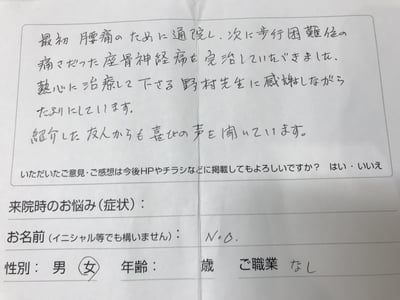 最初 腰痛のために通院し、次に歩行困難位の
痛さだった座骨神経痛も完治していただきました。
熱心に治療して下さる野村先生に感謝しながら
たよりにしています。
紹介した友人からも喜びの声を聞いています。
いただいたご意見・ご感想は今後HPやチラシなどに掲載してもよろしいですか？ はい・いいえ
来院時のお悩み(症状)：
お名前(イニシャル等でも構いません)： N.O.
性別： 男 女 年齢： 歳 ご職業 なし